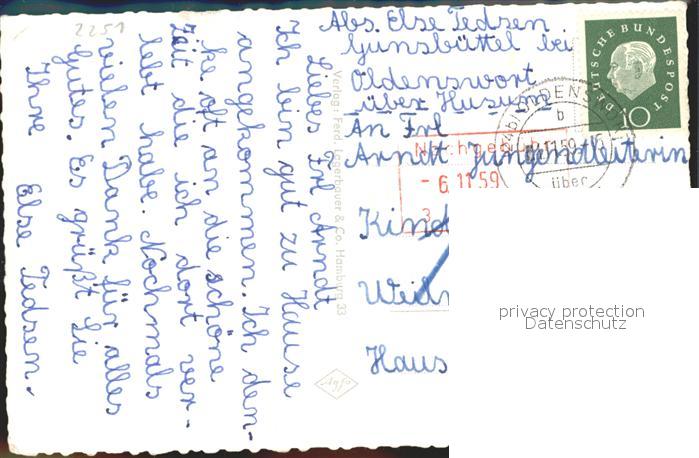 2251
Abs. Else Tedsen
Gunsbüttel bei
Oldenswort
über Husum
An Frl
Arndt Jungendleiterin
Kind
Weid
Haus
Liebes Frl Arndt
Ich bin gut zu Hause
angekommen. Ich den-
ke oft an die schöne
Zeit die ich dort ver-
lebt habe. Nochmals
vielen Dank für alles
Gutes. Es grüßt Sie
Ihre Else Tedsen.
Verlag: Ferd. Lagerbauer & Co. Hamburg 33
Agfa
DEUTSCHE BUNDESPOST
10
b
11.59
über
- 6. 11. 59
3
privacy protection
Datenschutz